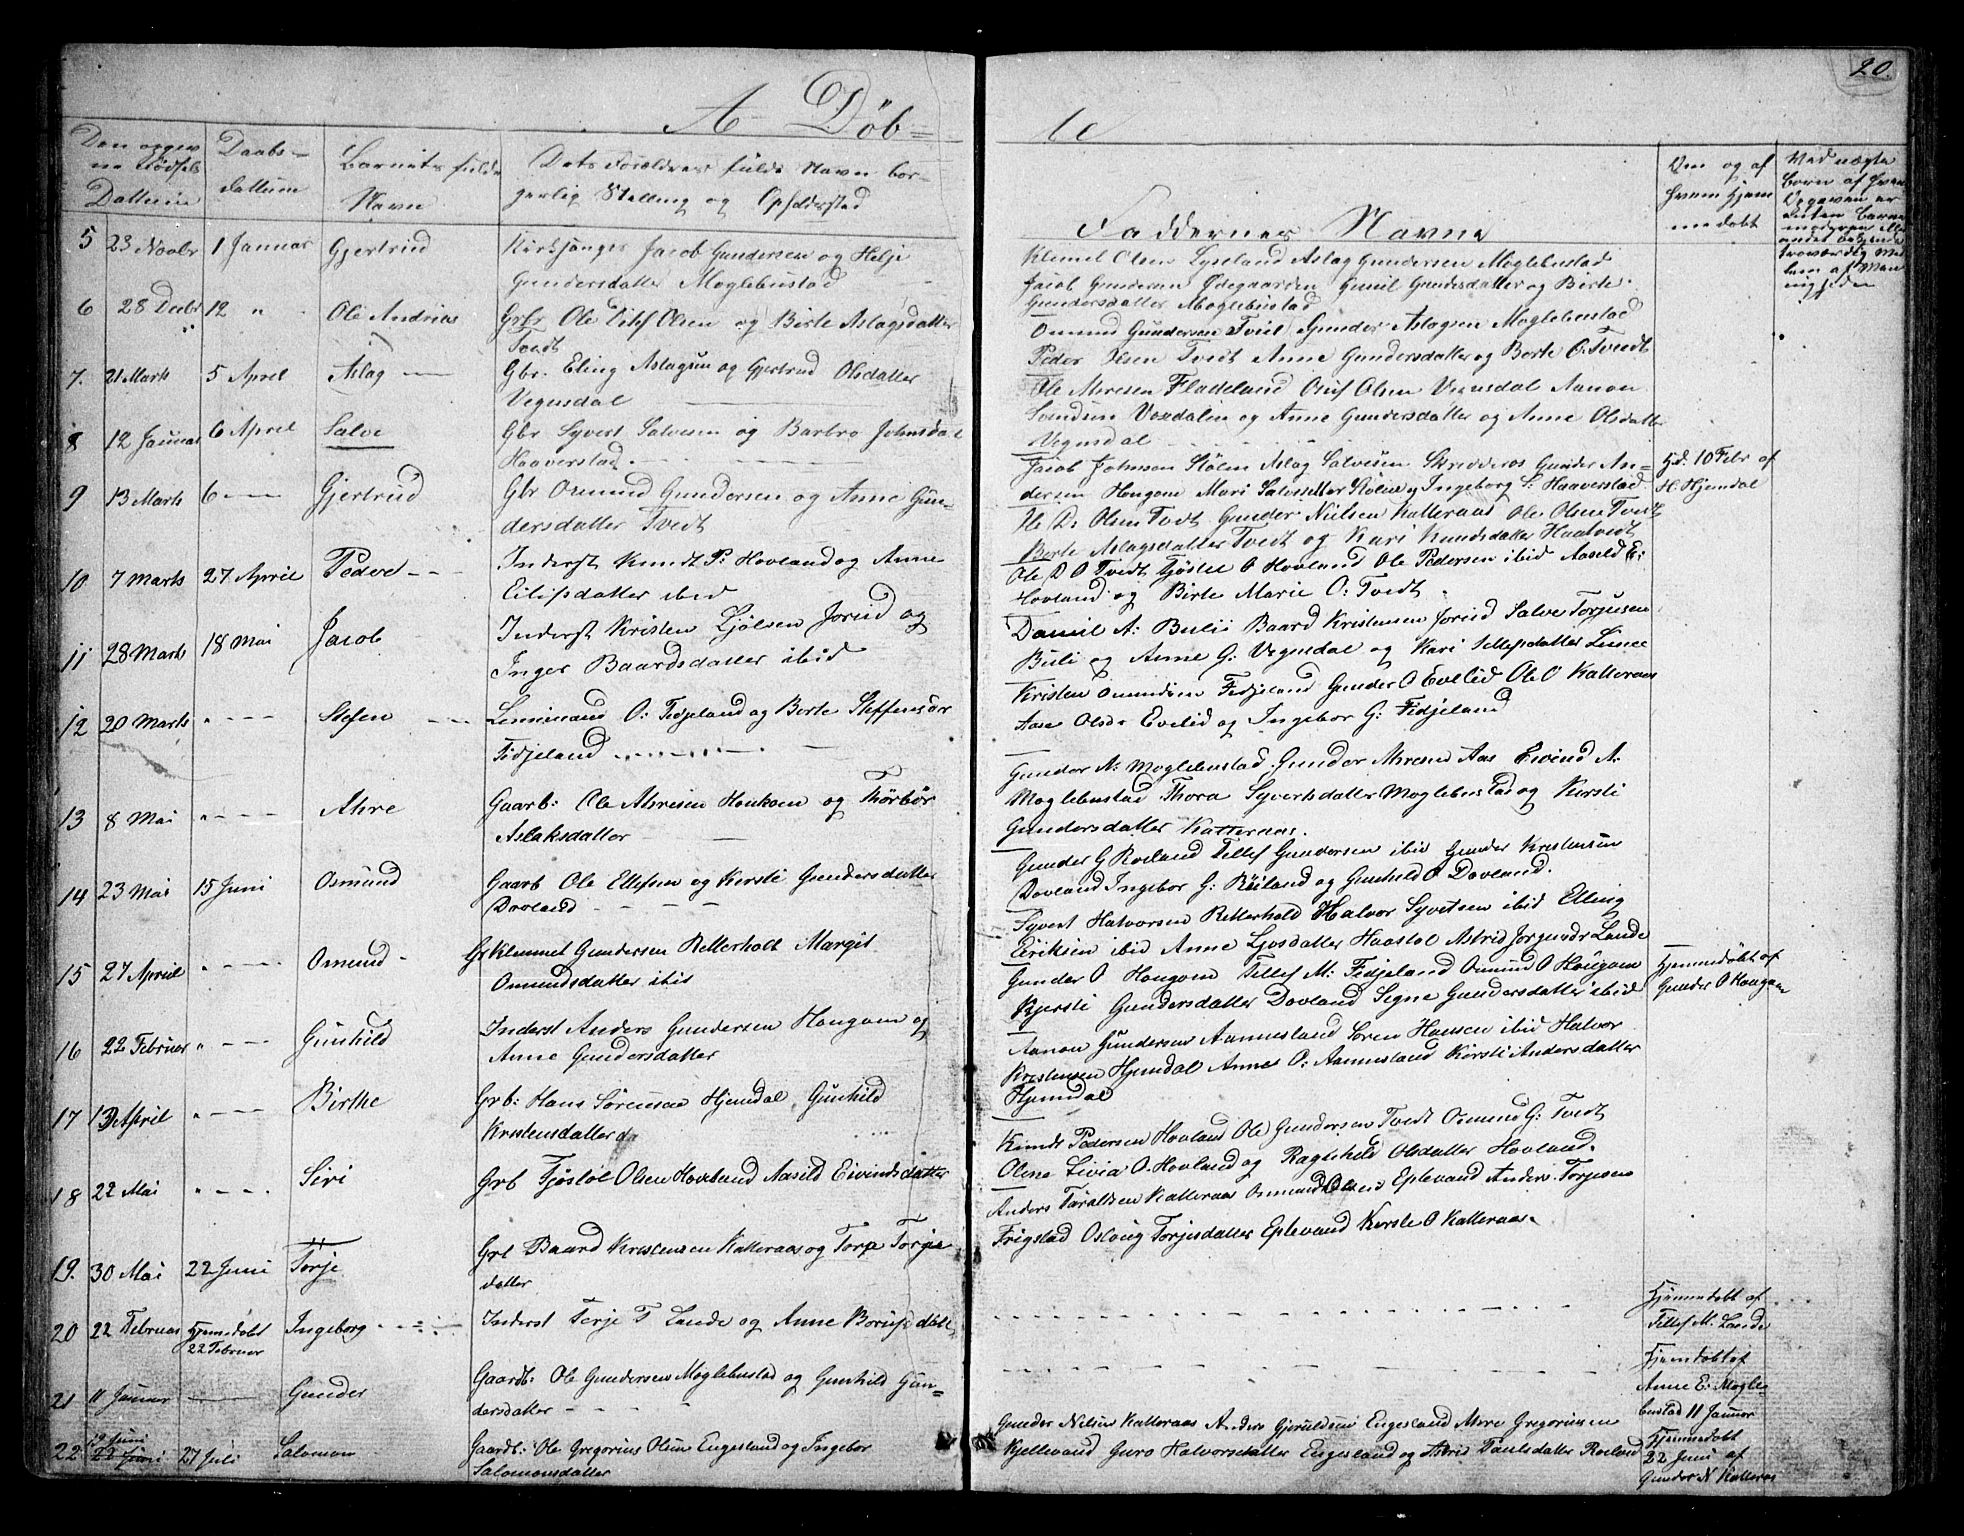 20.
A Døb= te
Den opgev
ne Fødsels
Dattum
Daabs-
dattum
Barnets fulde
Navn
Dets Forældres fulde Navn bor-
gerlig Stelling og Opholdsted
Faddernes Navne
Om og af
hvem hjem
medøbt
5 23 Novbr 1 Januar Gjertrud
Kirksjanger Jacob Gundersen og Helje
Gundersdatter Moglebustad
Klemet Olsen Lyseland Aslag Gundersen Moglebustad
Jacob Gundersen Ødegaarden Gunil Gundersdatter og Birte
Gundersdatter Moglebustad
6 28 Decbr 12 " Ole Andrias
Grbr Ole Ditlef Olsen og Birte Aslagsdatter
Tvedt
Omund Gundersen Tveit Gunder Aslagsen Moglebustad
Peder Olsen Tvedt Anne Gundersdatter og Berte O. Tvedt
7. 21 Marts 5 Aprel Aslag
Gbr. Eling Aslagsen og Gjertrud Olsdatter
Vegusdal
Ole Ahresen Fladeland Oluf Olsen Vegusdal Aanon
Svendsen Voxdalen og Anne Gundersdatter og Anne Olsdatter
Vegusdal
8 12 Januar 6 Aprel Salve
Gbr Syvert Salvesen og Barbro Johnsdat
Haaverstad
Jacob Johnsen Stølen Aslag Salvesen Skredderos Gunder An-
dersen Hougom Mari Salvesdatter Stølen og Ingeborg S: Haaverstad
Hd. 10 Febr af
H. Hjemdal
9 13 Marts 6 Gjertrud
Gbr Osmund Gundersen og Anne Gun-
dersdatter Tvedt
Ole D. Olsen Tvedt Gunder Nielsen Katteraas Ole Olsen Tvedt
Berte Aslagsdatter Tvedt og Kari Knudsdatter Haatvedt
10 7 Marts 27 April Peder
Inderst Knudt P: Hovland og Anne
Eilifsdatter ibid
Ole D O Tvedt Tjøstel O Hovland Ole Pedersen ibid Aasild E:
Hovland og Birte Marie O: Tvedt
11 28 Marts 18 Mai Jacob
Inderst Kristen Ljølsen Joreid og
Inger Baardsdatter ibid
Daniel A: Bulii Baard Kristensen Joreid Salve Torjusen
Buli og Anne G: Vegusdal og Kari Tellefsdatter
12 20 Marts " Stefen
O: Fidjeland og Berte Steffensdr
Fidjeland
Kristen Omundsen Fidjeland Gunder O Evelid Ole O Katteraas
Aase Olsdr Evelid og Ingebor G: Fidjeland
13 8 Mai " Ahre
Gaarb: Ole Ahresen Houkom og Thorbør
Aslaksdatter
Gunder A: Moglebustad Gunder Ahresen Aas Eivind A:
Moglebustad Thora Syvertsdatter Moglebustad og Kersti
Gundersdatter Katteraas.
14 23 Mai 15 Juni Osmund
Gaarb Ole Ellefsen og Kersti Gundersdatter
Dovland
Gunder G Roeland Tellef Gundersen ibid Gunder Kristensen
Dovland Ingebor G: Roiland og Gunhild O Dovland.
15 27 Apriil " Omund
Gr Klemmet Gundersen Retterholt Margit
Omundsdatter ibid
Syvert Halvorsen Retterhold Halvor Syvertsen ibid Elling
Eeriksen ibid Anne Ljosdatter Haastøl Astrid Jorgensdr Lande
16 22 Februar " Gunhild
Inderst Anders Gundersen Hougom og
Anne Gundersdatter
Gunder O Hougom Tellef M: Fidjeland Omund O Hougom
Kjersti Gundersdatter Dovland Segne Gundersdatter ibid
Hjemmedøbt af
Gunder O Hougom
17 13 April " Birthe
Grb: Hans Sørensen Hjemdal Gunhild
Kristensdatter do
Aanon Gundersen Aamnesland Soren Hansen ibid Halvor
Kristensen Hjemdal Anne O: Aamnesland Kersti Andersdatter
Hjemdal
18 22 Mai " Siri
Grb Tjøstøl Olsen Hovland Aasild Eivindsdatter
Knudt Pedersen Hovland Ole Gundersen Tvedt Osmund G: Tvedt
Olene Livia O. Hovland og Ragnhild Olsdatter Hovland.
19. 30 Mai 22 Juni Torje
Grb Baard Kristensen Katteraas og Torje
datter
Anders Taraldsen Katteraas Osmund Olsen Eplevand Anders Torjesen
Frigstad Oslaug Torjesdatter Eplevand Kerste O Katteraas.
20 22 Februar Hjemdøbt Ingeborg
22 Februar
Inderst Terje T Lande og Anne
Hjemmedøbt af
Tellef M. Lande
21 11 Januar Gunder
Gaardb: Ole Gundersen Moglebustad og Gunhild Gun-
dersdatter
Hjemdøbt af
Anne E: Mogle-
bustad 11 Januar
22 19 Juni 27 Juli Salomon
22 Juni
Gaardb: Ole Gregorius Olsen Engesland og Ingebor
Salomonsdatter
Gunder Nielsen Katteraas Anders Gjeruldsen Engesland Ahre Gregoriusen
Kjellevand Guro Halvorsdatter Engesland og Astrid Taulsdatter Roeland
Hjemmedøbt
22 Juni af
Gunder N Katteraas